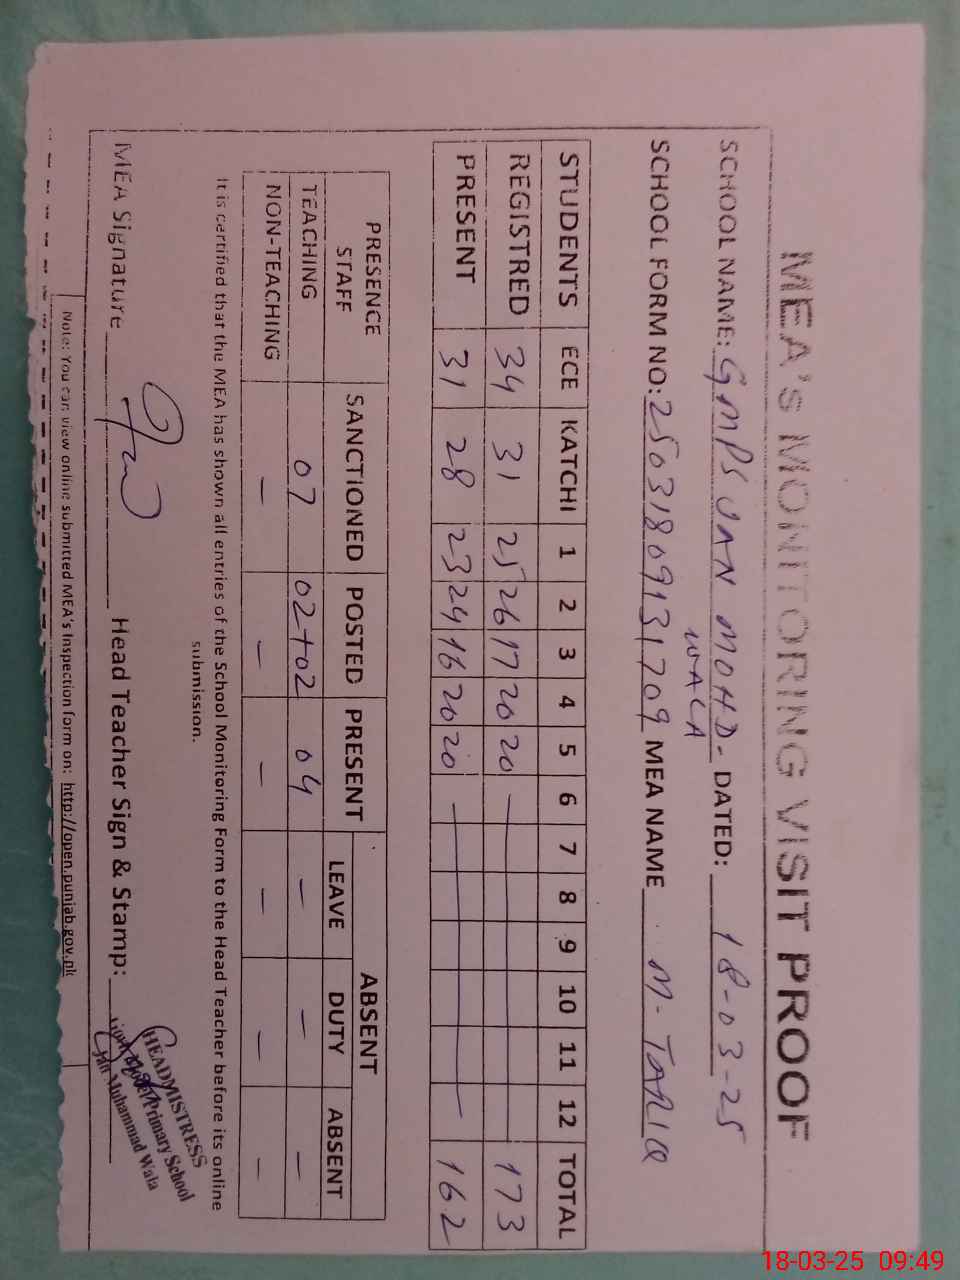 MEA'S MONITORING VISIT PROOF
SCHOOL NAME: GMPS JAN MOHD- DATED: 18-03-25
WALA
SCHOOL FORM NO: 25031809131709 MEA NAME M- TARIQ
STUDENTS ECE KATCHI 1 2 3 4 5 6 7 8 9 10 11 12 TOTAL
REGISTRED 34 31 25 26 17 20 20 — 173
PRESENT 31 28 23 24 16 20 20 — 162
PRESENCE STAFF SANCTIONED POSTED PRESENT ABSENT
LEAVE DUTY ABSENT
TEACHING 07 02+02 04 — — —
NON-TEACHING — — — — — —
It is certified that the MEA has shown all entries of the School Monitoring Form to the Head Teacher before its online
submission.
MEA Signature Head Teacher Sign & Stamp:
HEADMISTRESS
Govt. Model Primary School
Jan Muhammad Wala
Note: You can view online submitted MEA's Inspection form on: http://open.punjab.gov.pk
18-03-25 09:49